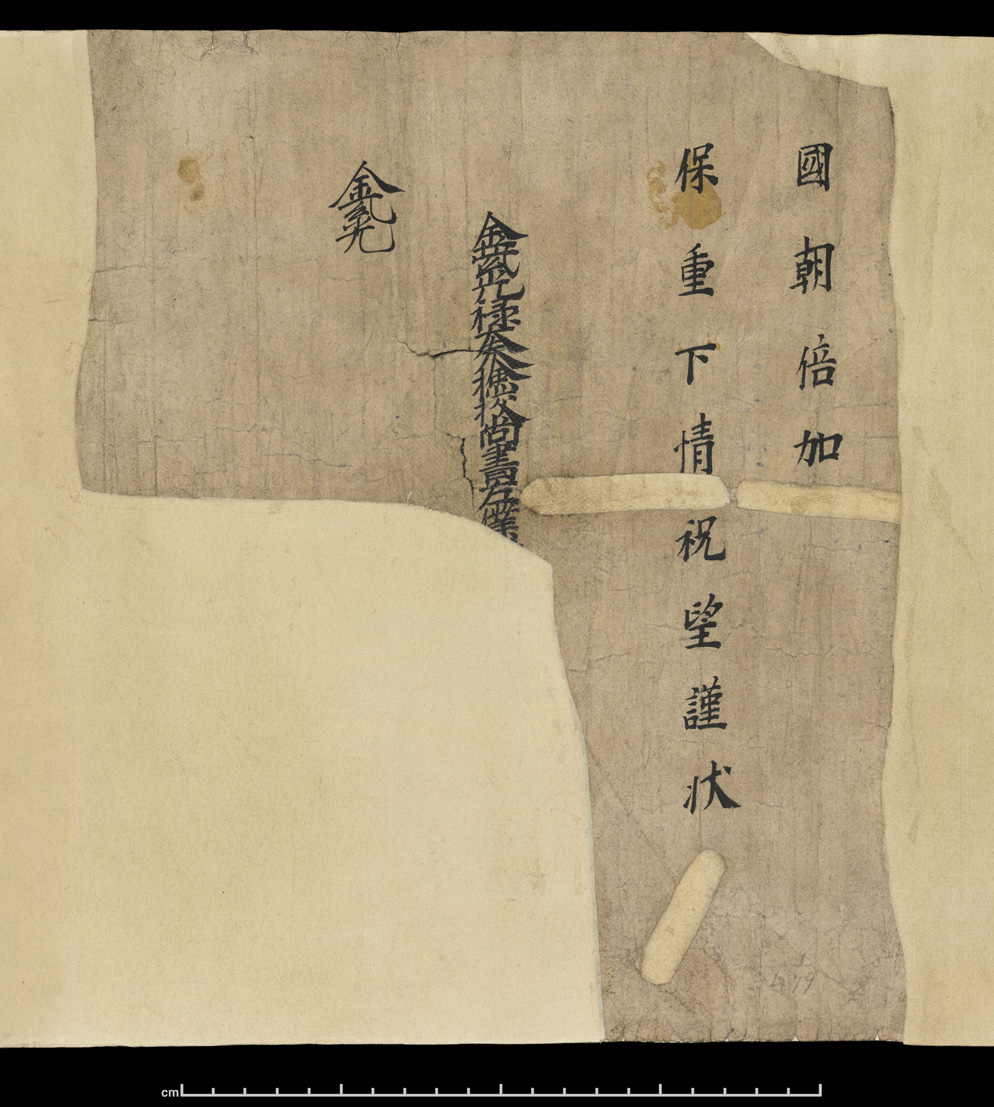 國朝倍加
保重下情祝望謹狀
金紫光祿大夫檢校尚書左僕
金紫光
479
cm